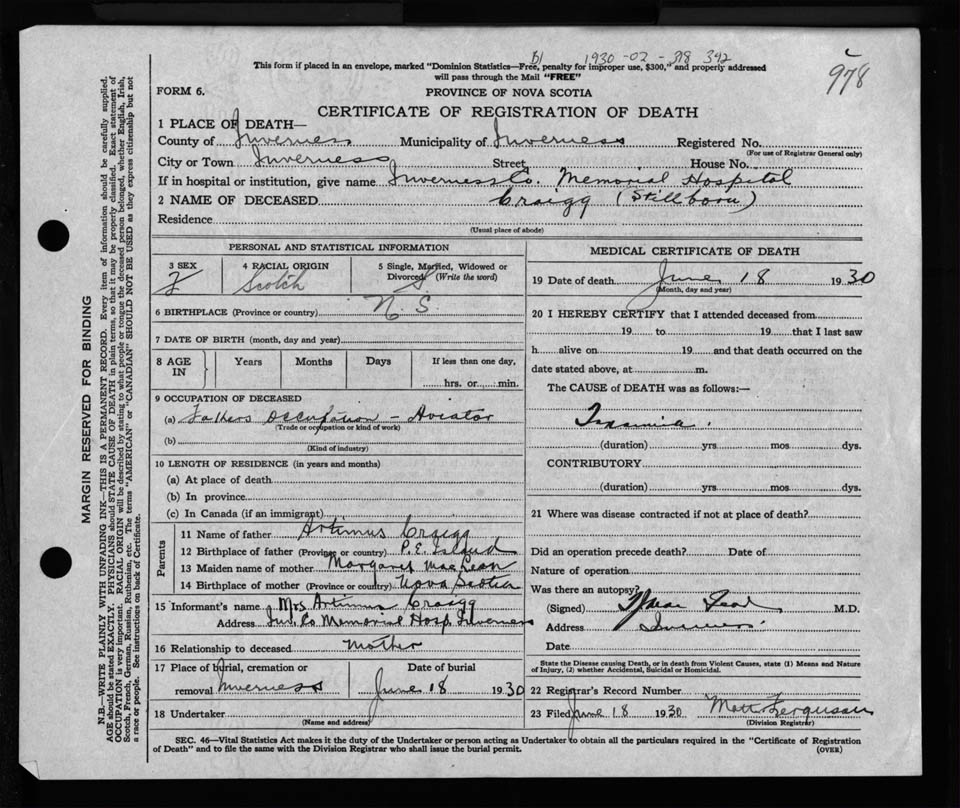 1930-02-
This form if placed in an envelope, marked "Dominion Statistics—Free, penalty for improper use, $300," and properly addressed
will pass through the Mail "FREE"
978
FORM 6.
PROVINCE OF NOVA SCOTIA
CERTIFICATE OF REGISTRATION OF DEATH
1 PLACE OF DEATH—
County of Inverness Municipality of Inverness Registered No.
(For use of Registrar General only)
City or Town Inverness Street House No.
If in hospital or institution, give name Inverness Co. Memorial Hospital
2 NAME OF DECEASED Craigg (Stillborn)
Residence
(Usual place of abode)
PERSONAL AND STATISTICAL INFORMATION
3 SEX F
4 RACIAL ORIGIN Scotch
5 Single, Married, Widowed or Divorced (Write the word) S
6 BIRTHPLACE (Province or country) N S.
7 DATE OF BIRTH (month, day and year)
8 AGE IN Years Months Days If less than one day, hrs. or min.
9 OCCUPATION OF DECEASED
(a) Fathers Occupation – Aviator
(Trade or occupation or kind of work)
(b)
(Kind of industry)
10 LENGTH OF RESIDENCE (in years and months)
(a) At place of death
(b) In province
(c) In Canada (if an immigrant)
Parents
11 Name of father Artimus Craigg
12 Birthplace of father (Province or country) P. E. Island
13 Maiden name of mother Margaret MacLean
14 Birthplace of mother (Province or country) Nova Scotia
15 Informant's name Mrs Artimus Craigg
Address Inv. Co Memorial Hosp. Inverness
16 Relationship to deceased Mother
17 Place of burial, cremation or removal Inverness
Date of burial June 18 1930
18 Undertaker
(Name and address)
MEDICAL CERTIFICATE OF DEATH
19 Date of death June 18 1930
(Month, day and year)
20 I HEREBY CERTIFY that I attended deceased from
19 to 19 that I last saw
h alive on 19 and that death occurred on the
date stated above, at m.
The CAUSE of DEATH was as follows:—
(duration) yrs mos dys.
CONTRIBUTORY
(duration) yrs mos dys.
21 Where was disease contracted if not at place of death?
Did an operation precede death? Date of
Nature of operation
Was there an autopsy?
(Signed) M.D.
Address Inverness
Date
State the Disease causing Death, or in death from Violent Causes, state (1) Means and Nature
of Injury, (2) whether Accidental, Suicidal or Homicidal.
22 Registrar's Record Number
23 Filed June 18 1930 Matt Ferguson
(Division Registrar)
SEC. 46—Vital Statistics Act makes it the duty of the Undertaker or person acting as Undertaker to obtain all the particulars required in the "Certificate of Registration
of Death" and to file the same with the Division Registrar who shall issue the burial permit.
(OVER)
MARGIN RESERVED FOR BINDING
N.B.—WRITE PLAINLY WITH UNFADING INK—THIS IS A PERMANENT RECORD. Every item of information should be carefully supplied.
AGE should be stated EXACTLY. PHYSICIANS should STATE CAUSE OF DEATH in plain terms, so that it may be properly classified. Exact statement of
OCCUPATION is very important. RACIAL ORIGIN will be described by stating to what people or tongue the deceased person belonged, whether English, Irish,
Scotch, French, German, Russian, Ruthenian, etc. The terms "AMERICAN" or "CANADIAN" SHOULD NOT BE USED as they express citizenship but not
a race or people. See instructions on back of Certificate.